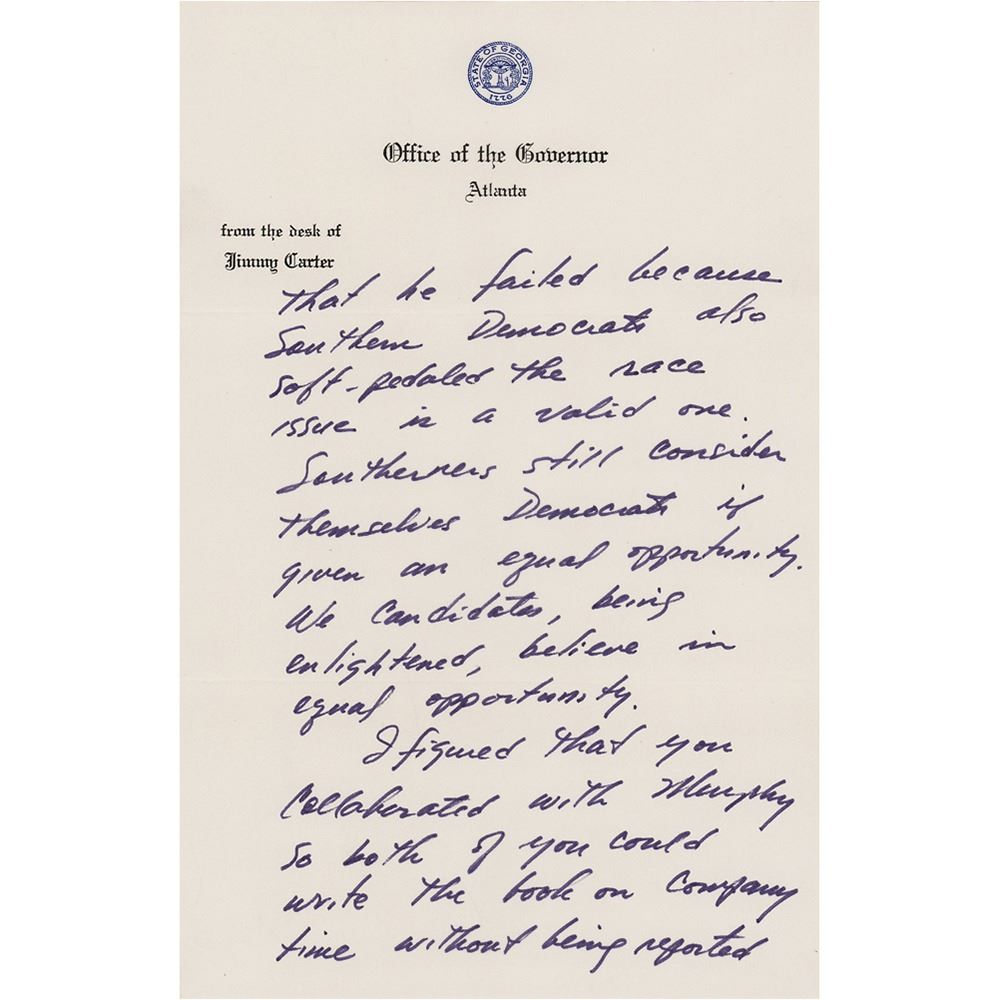 STATE OF GEORGIA
1776
Office of the Governor
Atlanta
from the desk of
Jimmy Carter
that he failed because
Southern Democrats also
soft-pedaled the race
issue is a valid one.
Southerners still consider
themselves Democrats if
given an equal opportunity.
We candidates, being
enlightened, believe in
equal opportunity.
I figured that you
collaborated with Murphy
so both of you could
write the book on company
time without being reported